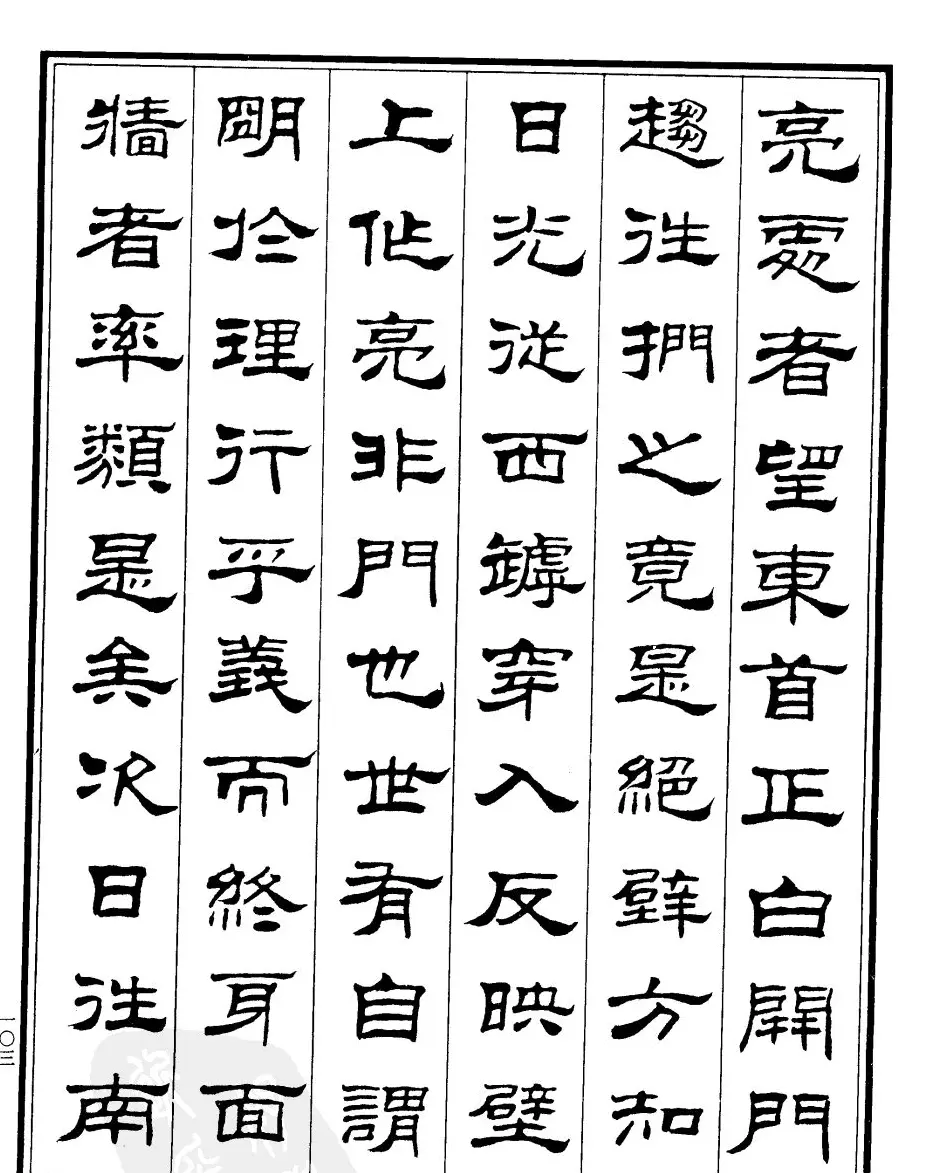 亮處者望東首正白開門
趨往捫之竟是絕壁方知
日光從西罅穿入反映壁
上作亮非門也世有自謂
明於理行乎義而終身面
牆者率類是矣次日往南
一〇三